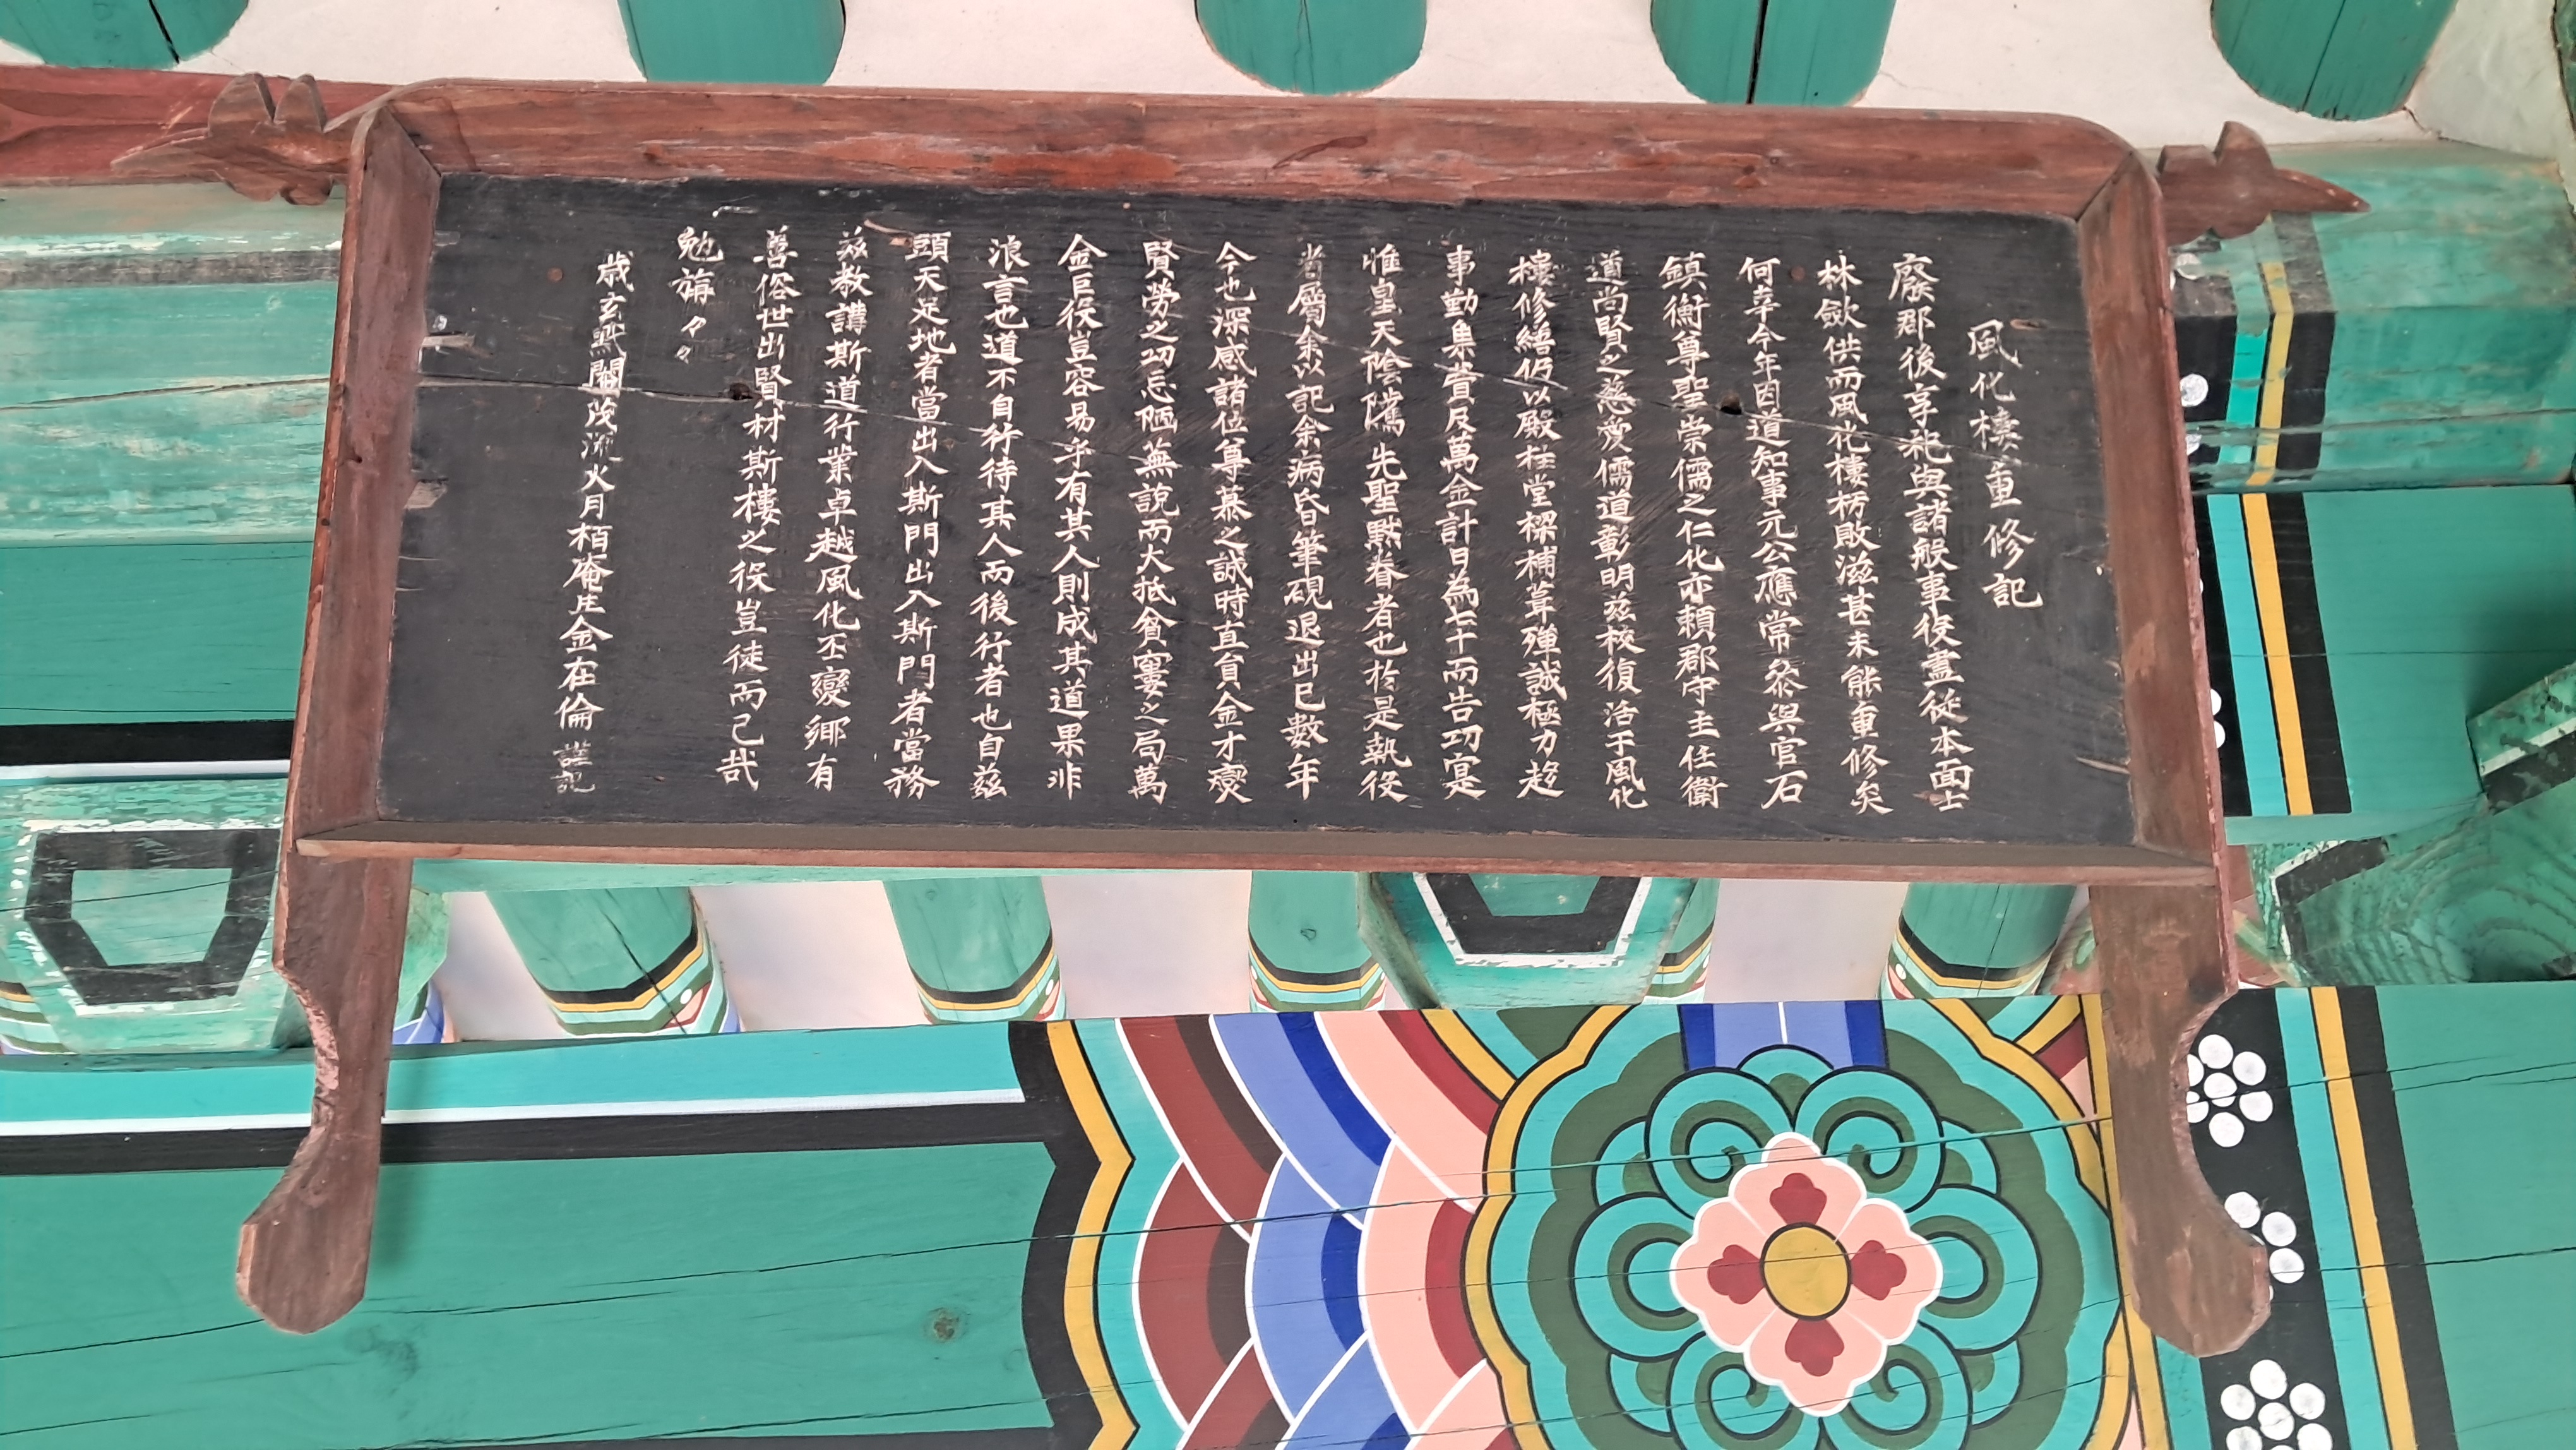 風化樓重修記
廢郡後享祀與諸般事役盡從本面士
林斂供而風化樓朽敗滋甚未能重修矣
何幸今年因道知事元公應常參與官石
鎮衡尊聖崇儒之仁化亦賴郡守主任衛
道尚賢之慈愛儒道彰明茲校復活于風化
樓修繕仍以殿柱堂樑補葺殫誠極力趍
事勤集費及萬金計日為七十而告功寔
惟皇天陰騭先聖黙眷者也於是執役
者屬余以記余病昏筆硯退出已數年
今也深感諸位尊慕之誠時直貟金才燮
賢勞之功忘陋蕪說而大抵貧窶之局萬
金巨役豈容易乎有其人則成其道果非
浪言也道不自行待其人而後行者也自茲
頭天足地者當出入斯門出入斯門者當務
茲教講斯道行業卓越風化丕變鄉有
善俗世出賢材斯樓之役豈徒而已哉
勉旃々々
歲玄黓閹茂流火月栢庵生金在倫 謹記